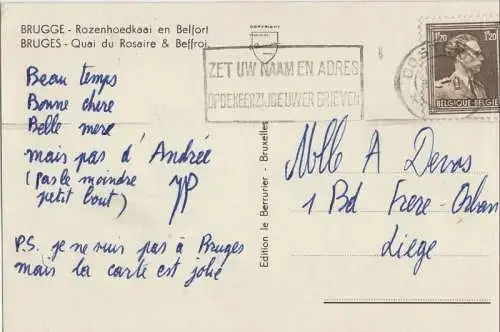 BRUGGE - Rozenhoedkaai en Belfort
BRUGES - Quai du Rosaire & Beffroi
COPYRIGHT
ZET UW NAAM EN ADRES
OP DE KEERZIJDE UWER BRIEVEN
1F20 1F20
BELGIQUE-BELGIE
Beau temps
Bonne chère
Belle mère
mais pas d'Andrée
(pas le moindre
petit bout)
JP
P.S. je ne suis pas à Bruges
mais la carte est jolie
Edition le Berrurier - Bruxelles
Mlle A Devos
1 Bd Frere-Orban
Liege